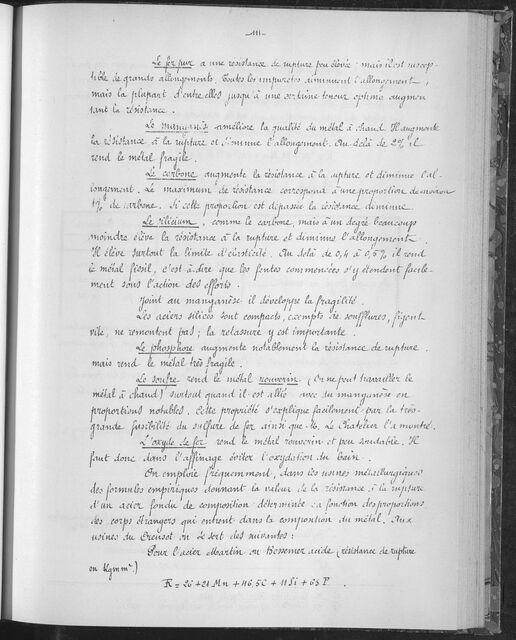 -111-
Le fer pur a une résistance de rupture peu élevée : mais il est suscep-
tible de grands allongements. Toutes les impuretés diminuent l'allongement,
mais la plupart d'entre elles jusqu'à une certaine teneur optima augmen
tant la résistance.
Le manganèse améliore la qualité du métal à chaud. Il augmente
la résistance à la rupture et diminue l'allongement. Au delà de 2% il
rend le métal fragile.
Le carbone augmente la résistance à la rupture et diminue l'al-
longement. Le maximum de résistance correspond à une proportion de environ
1% de carbone. Si cette proportion est dépassée la résistance diminue.
Le silicium, comme le carbone, mais à un degré beaucoup
moindre élève la résistance à la rupture et diminue l'allongement.
Il élève surtout la limite d'élasticité. Au delà de 0,4 à 0,5% il rend
le métal fissil, c'est à dire que les fentes commencées s'y étendent facile-
ment sous l'action des efforts.
Joint au manganèse il développe la fragilité.
Les aciers silicés sont compacts, exempts de soufflures, figent
vite, ne remontent pas ; la retassure y est importante.
Le phosphore augmente notablement la résistance de rupture
mais rend le métal très fragile.
Le soufre rend le métal rouverin (On ne peut travailler le
métal à chaud) surtout quand il est allié avec du manganèse en
proportions notables. Cette propriété s'explique facilement par la très
grande fusibilité du sulfure de fer ainsi que M. Le Chatelier l'a montré.
L'oxyde de fer rend le métal rouverin et peu soudable. Il
faut donc dans l'affinage éviter l'oxydation du bain.
On emploie fréquemment, dans les usines métallurgiques
des formules empiriques donnant la valeur de la résistance à la rupture
d'un acier fondu de composition déterminée en fonction des proportions
des corps étrangers qui entrent dans la composition du métal. Aux
usines du Creusot on se sert des suivantes :
Pour l'acier Martin ou Bessemer acide (résistance de rupture
en Kgmm².)
R = 26 + 21 Mn + 46,5C + 11 Si + 65 P.